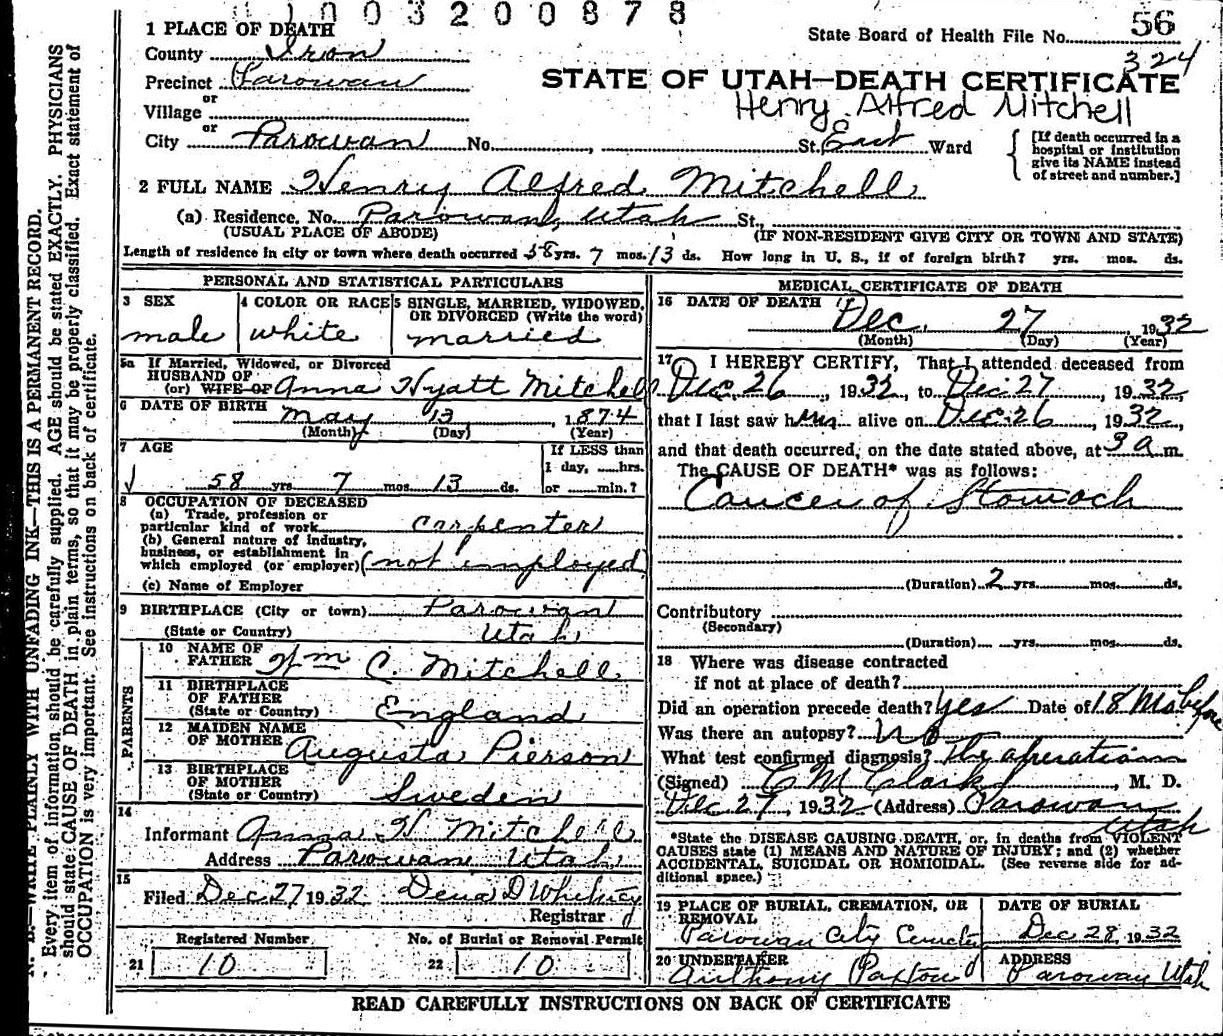 1003200878
56
State Board of Health File No.
324
1 PLACE OF DEATH
County Iron
Precinct Parowan
STATE OF UTAH—DEATH CERTIFICATE
Henry Alfred Mitchell
or
Village
or
City Parowan No. , St. East Ward
[If death occurred in a hospital or institution give its NAME instead of street and number.]
2 FULL NAME Henry Alfred Mitchell
(a) Residence. No. Parowan, Utah St.,
(USUAL PLACE OF ABODE) (IF NON-RESIDENT GIVE CITY OR TOWN AND STATE)
Length of residence in city or town where death occurred 58 yrs. 7 mos. 13 ds. How long in U. S., if of foreign birth? yrs. mos. ds.
PERSONAL AND STATISTICAL PARTICULARS
3 SEX
male
4 COLOR OR RACE
white
5 SINGLE, MARRIED, WIDOWED,
OR DIVORCED (Write the word)
married
5a If Married, Widowed, or Divorced
HUSBAND OF
(or) WIFE OF Anna Hyatt Mitchell
6 DATE OF BIRTH May 13 1874
(Month) (Day) (Year)
7 AGE
58 yrs 7 mos. 13 ds.
If LESS than
1 day, hrs.
or min.?
8 OCCUPATION OF DECEASED
(a) Trade, profession or
particular kind of work carpenter
(b) General nature of industry,
business, or establishment in
which employed (or employer) (not employed
(c) Name of Employer
9 BIRTHPLACE (City or town) Parowan
(State or Country) Utah
PARENTS
10 NAME OF
FATHER Wm C. Mitchell
11 BIRTHPLACE
OF FATHER
(State or Country) England
12 MAIDEN NAME
OF MOTHER Augusta Pierson
13 BIRTHPLACE
OF MOTHER
(State or Country) Sweden
14
Informant Anna H Mitchell
Address Parowan Utah
15
Filed Dec 27 1932
Registrar
Registered Number
21 10
No. of Burial or Removal Permit
22 10
MEDICAL CERTIFICATE OF DEATH
16 DATE OF DEATH
Dec. 27 1932
(Month) (Day) (Year)
17 I HEREBY CERTIFY, That I attended deceased from
Dec. 26 1932, to Dec 27, 1932,
that I last saw him alive on Dec. 26, 1932,
and that death occurred, on the date stated above, at 3 a m.
The CAUSE OF DEATH* was as follows:
Cancer of Stomach
(Duration) 2 yrs. mos. ds.
Contributory
(Secondary)
(Duration) yrs. mos. ds.
18 Where was disease contracted
if not at place of death?
Did an operation precede death? Yes Date of 18 Mo before
Was there an autopsy? No
What test confirmed diagnosis? The operation
(Signed) C M Clark, M. D.
Dec 27, 1932 (Address) Parowan
Utah
*State the DISEASE CAUSING DEATH, or, in deaths from VIOLENT
CAUSES state (1) MEANS AND NATURE OF INJURY; and (2) whether
ACCIDENTAL, SUICIDAL OR HOMICIDAL. (See reverse side for ad-
ditional space.)
19 PLACE OF BURIAL, CREMATION, OR
REMOVAL
Parowan City Cemetery
DATE OF BURIAL
Dec 28, 1932
20 UNDERTAKER
Anthony Paxton
ADDRESS
Parowan Utah
READ CAREFULLY INSTRUCTIONS ON BACK OF CERTIFICATE
N. B.—WRITE PLAINLY WITH UNFADING INK—THIS IS A PERMANENT RECORD.
Every item of information should be carefully supplied. AGE should be stated EXACTLY. PHYSICIANS
should state CAUSE OF DEATH in plain terms, so that it may be properly classified. Exact statement of
OCCUPATION is very important. See instructions on back of certificate.